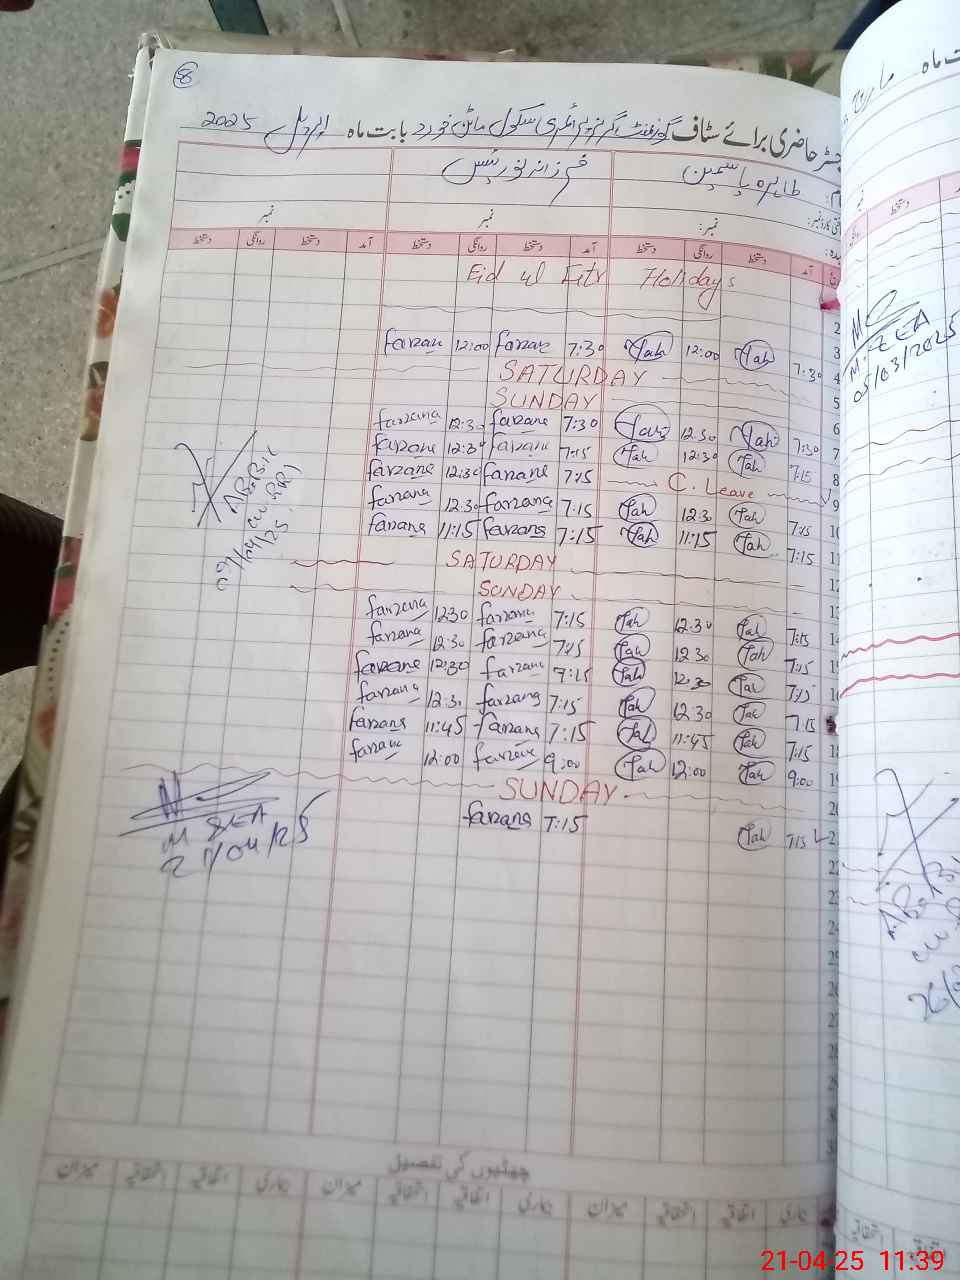 8
حاضری برائے سٹاف گورنمنٹ گرلز پرائمری سکول ماٹی خورد بابت ماہ اپریل 2025
طاہرہ یاسمین فرزانہ نورئیس
نمبر: نمبر نمبر
آمد دستخط روانگی دستخط آمد دستخط روانگی دستخط آمد دستخط روانگی دستخط
Eid ul Fitr Holidays
2
farzan 12:00 farzan 7:30 Tah 12:00 Tah 7:30 3
SATURDAY 4
SUNDAY 5
farzana 12:30 farzana 7:30 Tah 12:30 Tah 7:30 6
farzana 12:30 farzana 7:15 Tah 12:30 Tah 7:15 7
farzana 12:30 farzana 7:15 C. Leave 8
farzana 12:30 farzana 7:15 Tah 12:30 Tah 7:15 9
farzana 11:15 farzana 7:15 Tah 11:15 Tah 7:15 10
SATURDAY 11
SUNDAY 12
farzana 12:30 farzana 7:15 Tah 12:30 Tah 7:15 13
farzana 12:30 farzana 7:15 Tah 12:30 Tah 7:15 14
farzana 12:30 farzana 7:15 Tah 12:30 Tah 7:15
farzana 12:30 farzana 7:15 Tah 12:30 Tah 7:15
farzana 11:45 farzana 7:15 Tah 11:45 Tah 7:15 18
farzana 12:00 farzana 9:00 Tah 12:00 Tah 9:00 19
SUNDAY 20
farzana 7:15 Tah 7:15 21
M SEA
21/04/25
22
چھٹیوں کی تفصیل
جاری اتفاقیہ اتفاقیہ میزان جاری اتفاقیہ اتفاقیہ میزان جاری اتفاقیہ اتفاقیہ میزان
ت ماہ مارچ
M. SEA
05/03/2025
21-04-25 11:39